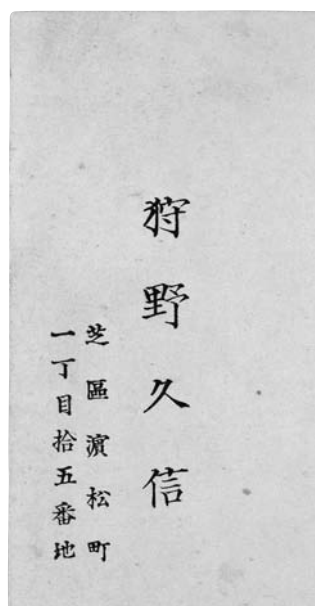 狩野久信
芝區濵松町
一丁目拾五番地